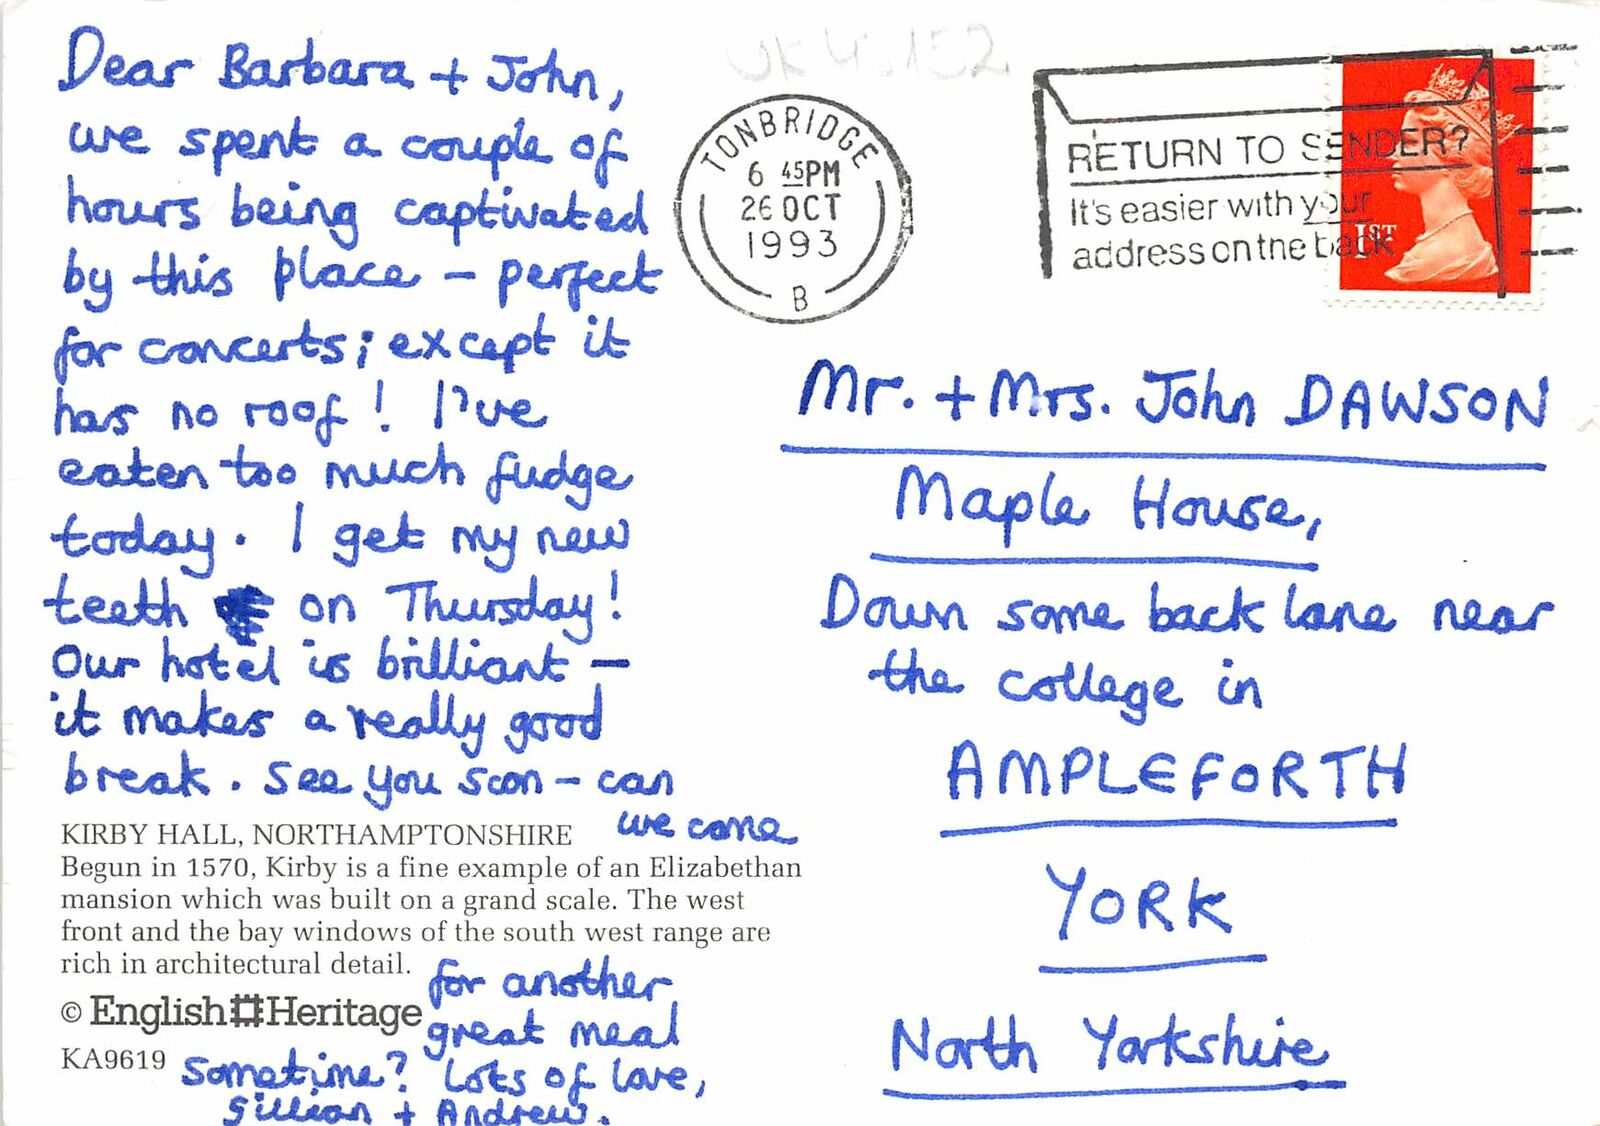 Dear Barbara + John,
we spent a couple of
hours being captivated
by this place – perfect
for concerts; except it
has no roof! I've
eaten too much fudge
today. I get my new
teeth on Thursday!
Our hotel is brilliant –
it makes a really good
break. See you soon – can
we come
KIRBY HALL, NORTHAMPTONSHIRE
Begun in 1570, Kirby is a fine example of an Elizabethan
mansion which was built on a grand scale. The west
front and the bay windows of the south west range are
rich in architectural detail.
for another
great meal
sometime? Lots of love,
Gillian + Andrew.
© English Heritage
KA9619
UK 43152
TONBRIDGE
6 45PM
26 OCT
1993
B
RETURN TO SENDER?
It's easier with your
address on the back
1ST
Mr. + Mrs. John DAWSON
Maple House,
Down some back lane near
the college in
AMPLEFORTH
YORK
North Yorkshire